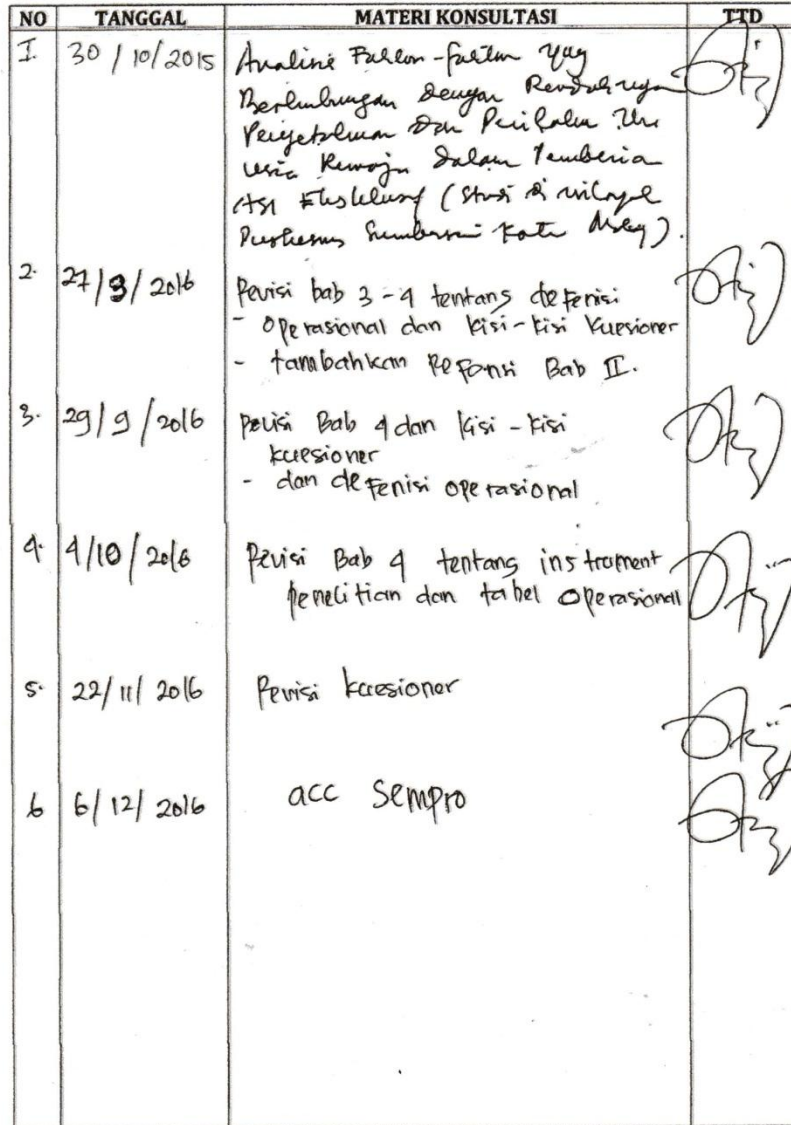 NO TANGGAL MATERI KONSULTASI TTD
I. 30/10/2015 Analisis Faktor-faktor yang
Berhubungan dengan Rendahnya
Pengetahuan Dan Perilaku Ibu
usia Remaja dalam Pemberia
ASI Eksklusif (studi di wilayah
Puskesmas Sumbersari Kota Malang).
2. 27/9/2016 Revisi bab 3-4 tentang defenisi
- operasional dan kisi-kisi kuesioner
- tambahkan Bab II.
3. 29/9/2016 Revisi Bab 4 dan kisi-kisi
kuesioner
- dan defenisi operasional
4. 4/10/2016 Revisi Bab 4 tentang instrument
penelitian dan tabel operasional
5. 22/11/2016 Revisi kuesioner
6 6/12/2016 acc sempro